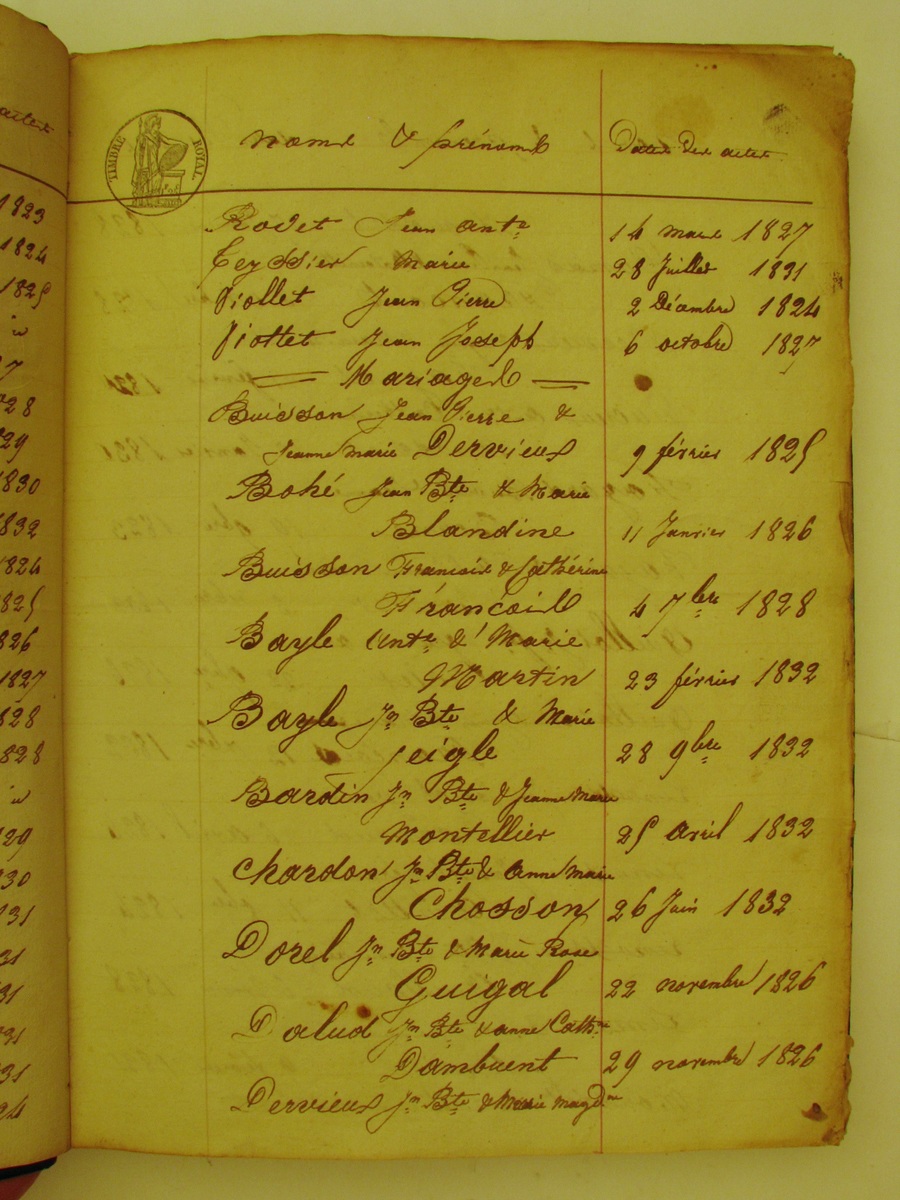 TIMBRE ROYAL
noms & prénoms
Dates des actes
Rovet Jean ante 14 mars 1827
Teyssier Marie 28 Juillet 1831
Viollet Jean Pierre 2 Décembre 1824
Viollet Jean Joseph 6 octobre 1827
= Mariages =
Buisson Jean Pierre &
Jeanne marie Dervieux 9 février 1825
Bohé Jean Bte & Marie
Blandine 11 Janvier 1826
Buisson Francois & Cathérine
François 4 7bre 1828
Bayle Ante & Marie
Martin 23 février 1832
Bayle Jn Bte & Marie
Seigle 28 9bre 1832
Bardin Jn Bte & Jeanne Marie
Montellier 25 avril 1832
Chardon Jn Bte & anne Marie
Chosson 26 Juin 1832
Dorel Jn Bte & Marie Rose
Guigal 22 novembre 1826
Dalud Jn Bte & anne Cathne
Dambuent 29 novembre 1826
Dervieux Jn Bte & Marie magdne
1823
1824
1825
28
29
1830
1832
1824
1825
1826
1827
1828
1828
29
30
31
31
31
31
31
24